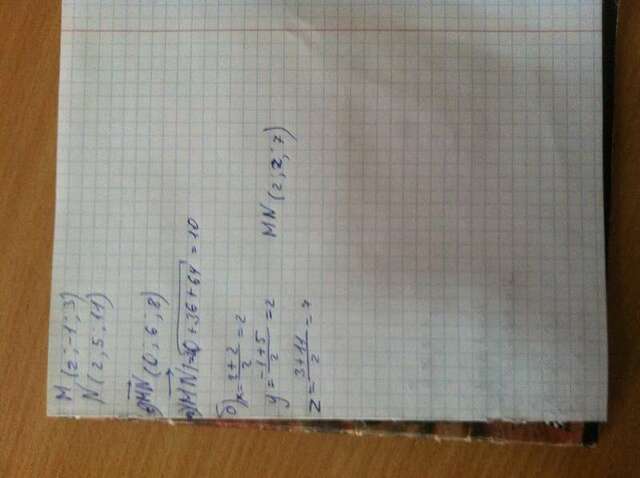 M(2;-1;3)
N(2,5;11)
в) MN→(0;6;8)
а) |MN→|=√0+36+64=10
б) x=2+2/2=2
y=-1+5/2=2
MN(2;2;7)
z=3+11/2=7